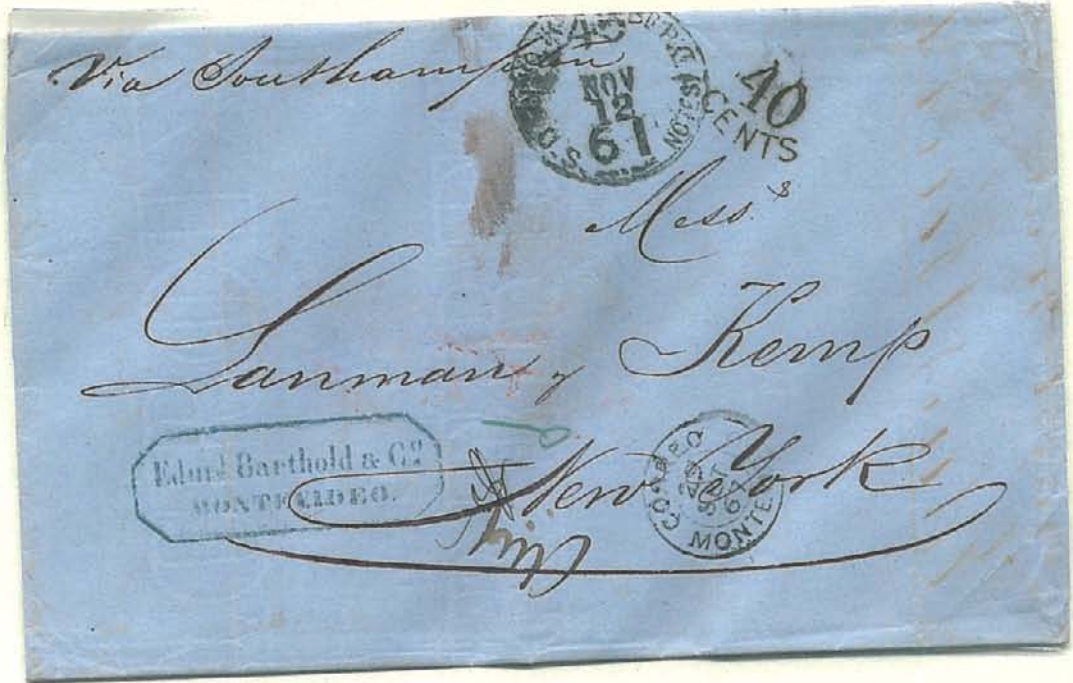 Via Southampton
NOV
12
61
NOTES
40
CENTS
Mess.s
Lanman y Kemp
New York
Edurd Barthold & Co
MONTEVIDEO.
CORREO
MONTE